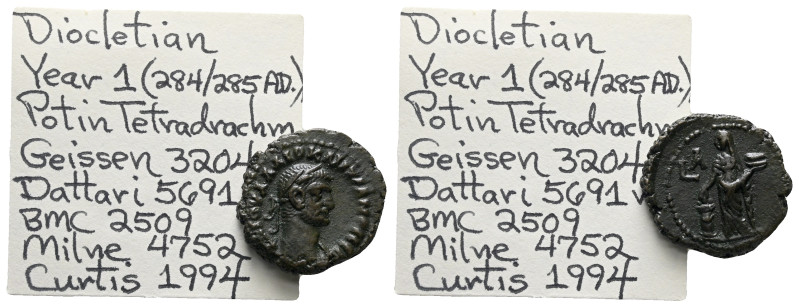 Diocletian
Year 1 (284/285 AD.)
Potin Tetradrachm
Geissen 3204
Dattari 5691
BMC 2509
Milne 4752
Curtis 1994
Diocletian
Year 1 (284/285 AD.)
Potin Tetradrachm
Geissen 3204
Dattari 5691 v
BMC 2509
Milne 4752
Curtis 1994